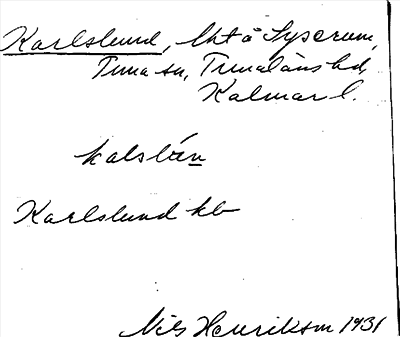 Karlslund, lht å Syserum,
Tuna sn, Tunaläns hd,
Kalmar l.
kalslu̇n
Karlslund kb
Nils Henrikson 1931